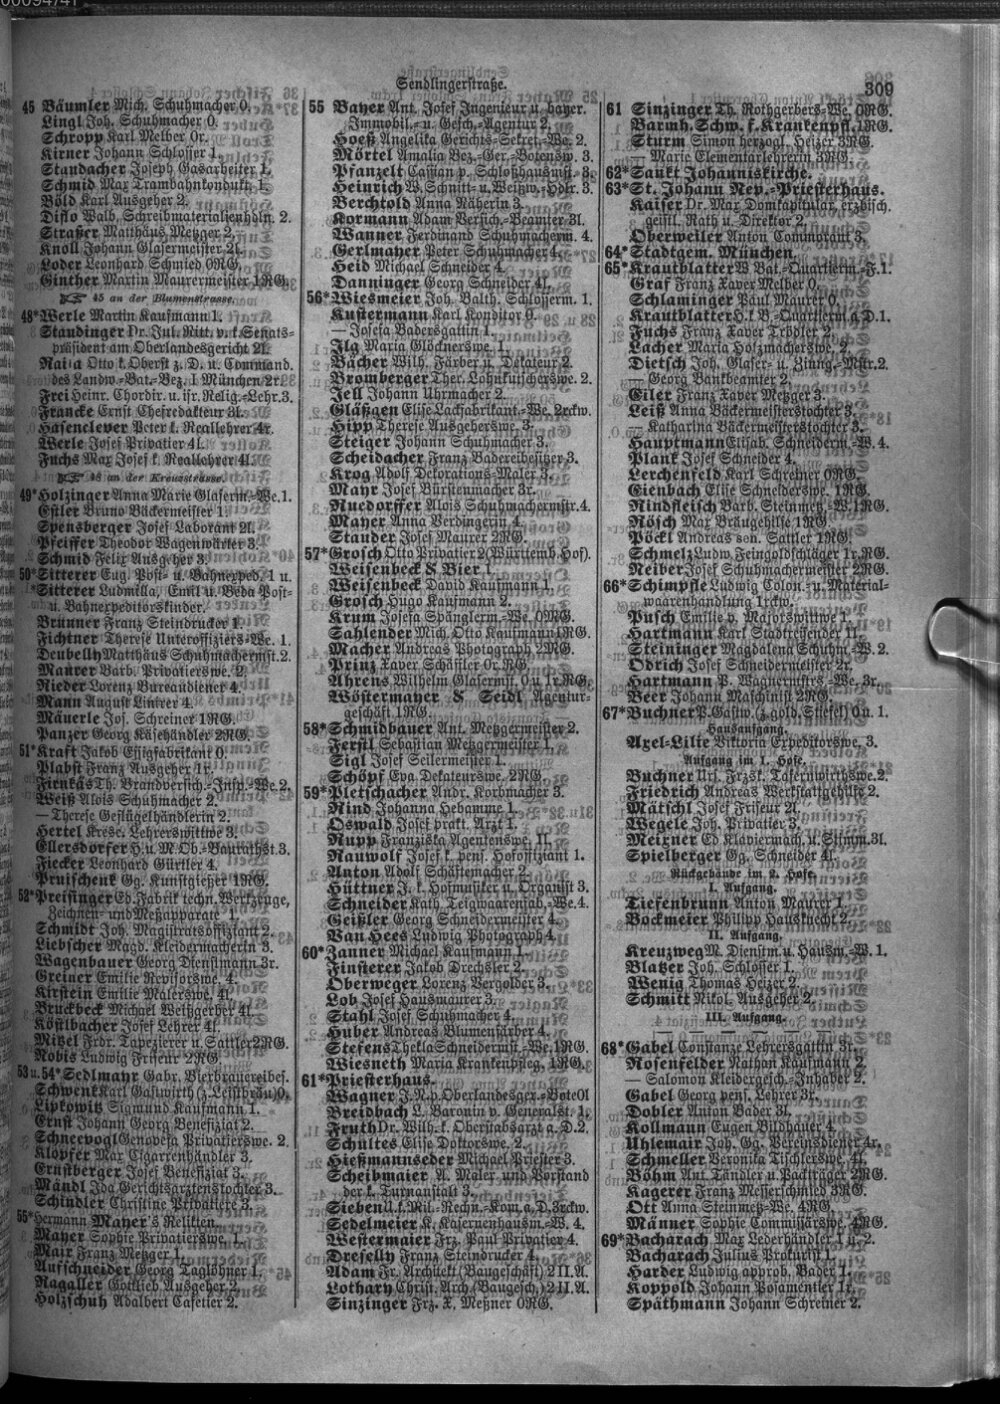 Sendlingerstraße.
309
45 Bäumler Mich. Schuhmacher 0.
Lingl Joh. Schuhmacher 0.
Schropp Karl Melber 0r.
Kirner Johann Schlosser 1.
Standacher Joseph Gasarbeiter 1.
Schmid Max Trambahnkondukt. 1.
Böld Karl Ausgeher 2.
Distlo Walb. Schreibmaterialienhdln. 2.
Straßer Matthäus Metzger 2.
Knoll Johann Glasermeister 2l.
Loder Leonhard Schmied 0RG.
Ginther Martin Maurermeister 1RG.
45 an der Blumenstrasse.
48* Werle Martin Kaufmann 1.
Staudinger Dr. Jul. Ritt. v. k. Senats-
präsident am Oberlandesgericht 2l.
Otto k. Oberst z. D. u. Command.
des Landw.-Bat.-Bez. I München 2r.
Frei Heinr. Chordir. u. isr. Relig.-Lehr. 3.
Francke Ernst Chefredakteur 3l.
Hasenclever Peter k. Reallehrer 4r.
Werle Josef Privatier 4l.
Fuchs Max Josef k. Reallehrer 4l.
48 an der Kreuzstrasse.
49* Holzinger Anna Marie Glaserm.-We. 1.
Estler Bruno Bäckermeister 1.
Spensberger Josef Laborant 2l.
Pfeiffer Theodor Wagenwärter 3.
Schmid Felix Ausgeher 3.
50* Sitterer Eug. Post- u. Bahnexped. 1 u.
Sitterer Ludmilla, Emil u. Beda Post-
u. Bahnexpeditorskinder.
Brunner Franz Steindrucker 1.
Fichtner Therese Unteroffiziers-We. 1.
Deubelly Matthäus Schuhmachermst. 2.
Maurer Barb. Privatierswe. 2.
Rieder Lorenz Bureaudiener 4.
Mann August Linirer 4.
Männerle Jos. Schreiner 1RG.
Panzer Georg Käsehändler 2RG.
51* Kraft Jakob Essigfabrikant 0.
Plabst Franz Ausgeher 1r.
Firnkäs Th. Brandversich.-Insp.-We. 2.
Weiß Alois Schuhmacher 2.
— Therese Geflügelhändlerin 2.
Hertel Kresc. Lehrerswittwe 3.
Ellersdorfer H. u. M. Ob.-Baurathst. 3.
Fiecker Leonhard Gürtler 4.
Pruischenk Gg. Kunstgießer 1RG.
52* Preisinger Ed. Fabrik techn. Werkzeuge,
Zeichnen- und Meßapparate 1.
Schmidt Joh. Magistratsoffiziant 2.
Liebscher Magd. Kleidermacherin 3.
Wagenbauer Georg Dienstmann 3r.
Greiner Emilie Revisorswe. 4.
Kirstein Emilie Malerswe. 4l.
Bruckbeck Michael Weißgerber 4l.
Köstlbacher Josef Lehrer 4l.
Mitzel Frdr. Tapezierer u. Sattler 2RG.
Nobis Ludwig Friseur 2RG.
53 u. 54* Sedlmayr Gabr. Bierbrauereibes.
Schwenk Karl Gastwirth (z. Leistbräu) 0.
Lipkowitz Sigmund Kaufmann 1.
Ernst Johann Georg Benefiziat 2.
Schneevogl Genovefa Privatierswe. 2.
Klopfer Max Cigarrenhändler 3.
Ernstberger Josef Benefiziat 3.
Mändl Ida Gerichtsarztenstochter 3.
Schindler Christine Privatiere 3.
55* Hermann Mayer's Relikten.
Mayer Sophie Privatierswe. 1.
Mair Franz Metzger 1.
Aufschneider Georg Taglöhner 1.
Ragaller Gottlieb Ausgeher 2.
Holzschuh Adalbert Cafetier 2.
55 Bayer Ant. Josef Ingenieur u. bayer.
Immobil.- u. Gesch.-Agentur 2.
Hoeß Angelika Gerichts-Sekret.-We. 2.
Mörtel Amalia Bez.-Ger.-Botensw. 3.
Pfanzelt Cassian p. Schloßhausmst. 3.
Heinrich W. Schnitt- u. Weißw.-Hdlr. 3.
Berchtold Anna Näherin 3.
Kormann Adam Versich.-Beamter 3l.
Wanner Ferdinand Schuhmacherm. 4.
Gerlmayer Peter Schuhmacher 4.
Heid Michael Schneider 4.
Danninger Georg Schneider 4l.
56* Wiesmeier Joh. Balth. Schlosserm. 1.
Kustermann Karl Konditor 0.
— Josefa Badersgattin 1.
Ilg Maria Glöcknerswe. 1.
Bächer Wilh. Färber u. Dekateur 2.
Bromberger Ther. Lohnkutscherswe. 2.
Jell Johann Uhrmacher 2.
Gläßgen Elise Lackfabrikant.-We. 2rckw.
Hipp Therese Ausgeherswe. 3.
Steiger Johann Schuhmacher 3.
Scheidacher Franz Badereibesitzer 3.
Krog Adolf Dekorations-Maler 3.
Mayr Josef Bürstenmacher 3r.
Ruedorffer Alois Schuhmachermstr. 4.
Mayer Anna Verdingerin 4.
Stander Josef Maurer 2RG.
57* Grosch Otto Privatier 2 (Württemb. Hof).
Weisenbeck & Bier 1.
Weisenbeck David Kaufmann 1.
Grosch Hugo Kaufmann 2.
Krum Josefa Spänglerm.-We. 0RG.
Sahlender Mich. Otto Kaufmann 1RG.
Macher Andreas Photograph 2RG.
Prinz Xaver Schäffler 0r. RG.
Ahrens Wilhelm Glasermst. 0 u. 1r. RG.
Wöstermayer & Seidl Agentur-
geschäft 1RG.
58* Schmidbauer Ant. Metzgermeister 2.
Ferstl Sebastian Metzgermeister 1.
Sigl Josef Seilermeister 1.
Schöpf Eva Dekateurswe. 2RG.
59* Pletschacher Andr. Korbmacher 3.
Rind Johanna Hebamme 1.
Oswald Josef prakt. Arzt 1.
Rupp Franziska Agentenswe. 1l.
Rauwolf Josef k. pens. Hofoffiziant 1.
Anton Adolf Schäftemacher 2.
Hüttner J. k. Hofmusiker u. Organist 3.
Schneider Kath. Teigwaarenfab.-We. 4.
Geißler Georg Schneidermeister 4.
Van Hees Ludwig Photograph 4.
60* Zanner Michael Kaufmann 1.
Finsterer Jakob Drechsler 2.
Oberweger Lorenz Vergolder 3.
Lob Josef Hausmaurer 3.
Stahl Josef Schuhmacher 4.
Huber Andreas Blumenfärber 4.
Stefens Thekla Schneidermst.-We. 1RG.
Wiesneth Maria Krankenpfleg. 1RG.
61* Priesterhaus.
Wagner J. N. p. Oberlandesger.-Bote 0l
Breidbach L. Baronin v. Generalst. 1.
Fruth Dr. Wilh. k. Oberstabsarzt a. D. 2.
Schultes Elise Doktorswe. 2.
Hießmannseder Michael Priester 3.
Scheibmaier A. Maler und Vorstand
der k. Turnanstalt 3.
Sieben U. k. Mil.-Rechn.-Kom. a. D. 3rckw.
Sedelmeier K. Kasernenhausm.-W. 4.
Westermaier Frz. Paul Privatier 4.
Dreselly Franz Steindrucker 4.
Adam Fr. Architekt (Baugeschäft) 2 II. A.
Lothary Christ. Arch. (Baugesch.) 2 II. A.
Sinzinger Frz. X. Meßner 0RG.
61 Sinzinger Th. Rothgerbers-We. 0RG.
Barmh. Schw. f. Krankenpfl. 1RG.
Sturm Simon herzogl. Heizer 3RG.
— Marie Elementarlehrerin 3RG.
62* Sankt Johanniskirche.
63* St. Johann Nep.-Priesterhaus.
Kaiser Dr. Max Domkapitular, erzbisch.
geistl. Rath u. Direktor 2.
Oberweiler Anton Commorant 3.
64* Stadtgem. München.
65* Krautblatter W. Bat.-Quartierm.-F. 1.
Graf Franz Xaver Melber 0.
Schlaminger Paul Maurer 0.
Krautblatter H. k. B.-Quartierm. a. D. 1.
Fuchs Franz Xaver Trödler 2.
Lacher Maria Holzmacherswe. 2.
Dietsch Joh. Glaser- u. Zinng.-Mstr. 2.
— Georg Bankbeamter 2.
Eiler Franz Xaver Metzger 3.
Leiß Anna Bäckermeisterstochter 3.
— Katharina Bäckermeisterstochter 3.
Hauptmann Elisab. Schneiderm.-W. 4.
Plank Josef Schneider 4.
Lerchenfeld Karl Schreiner 0RG.
Eienbach Elise Schneiderswe. 1RG.
Rindfleisch Barb. Steinmetz.-W. 1RG.
Rösch Max Bräugehilfe 1RG.
Pöckl Andreas sen. Sattler 1RG.
Schmelz Ludw. Feingoldschläger 1r. RG.
Neiber Josef Schuhmachermeister 2RG.
66* Schimpfle Ludwig Colon.- u. Material-
waarenhandlung 1rckw.
Pusch Emilie v. Majorswittwe 1.
Hartmann Karl Stadtreisender 1l.
Steininger Magdalena Schuhm.-W. 2.
Odrich Josef Schneidermeister 2r.
Hartmann P. Wagnermstrs.-We. 3r.
Beer Johann Maschinist 2RG.
67* Buchner P. Gastw. (z. gold. Stiefel) 0 u. 1.
Hausaufgang.
Axel-Lilie Viktoria Expeditorswe. 3.
Aufgang im I. Hofe.
Buchner Urs. Frzsk. Tafernwirthswe. 2.
Friedrich Andreas Werkstattgehilfe 2.
Mätschl Josef Friseur 2l.
Wegele Joh. Privatier 3.
Meixner Ed. Klaviermach. u. Stimm. 3l.
Spielberger Gg. Schneider 4l.
Rückgebäude im 2. Hofe.
I. Aufgang.
Tiefenbrunn Anton Maurer 1.
Bockmeier Philipp Hausknecht 2.
II. Aufgang.
Kreuzweg M. Dienstm. u. Hausm.-W. 1.
Blatzer Joh. Schlosser 1.
Wenig Thomas Heizer 2.
Schmitt Nikol. Ausgeher 2.
III. Aufgang.
68* Gabel Constanze Lehrersgattin 3r.
Rosenfelder Nathan Kaufmann 2.
— Salomon Kleidergesch.-Inhaber 2.
Gabel Georg pens. Lehrer 3r.
Dobler Anton Bader 3l.
Kollmann Eugen Bildhauer 4.
Uhlemair Joh. Gg. Vereinsdiener 4r.
Schmeller Veronika Tischlerswe. 4l.
Böhm Ant. Tändler u. Packträger 2RG.
Kagerer Franz Messerschmied 3RG.
Ott Anna Steinmetz-We. 4RG.
Männer Sophie Commissärswe. 4RG.
69* Bacharach Max Lederhändler 1 u. 2.
Bacharach Julius Prokurist 1.
Harder Ludwig approb. Bader 1.
Koppold Johann Posamentier 1r.
Späthmann Johann Schreiner 2.